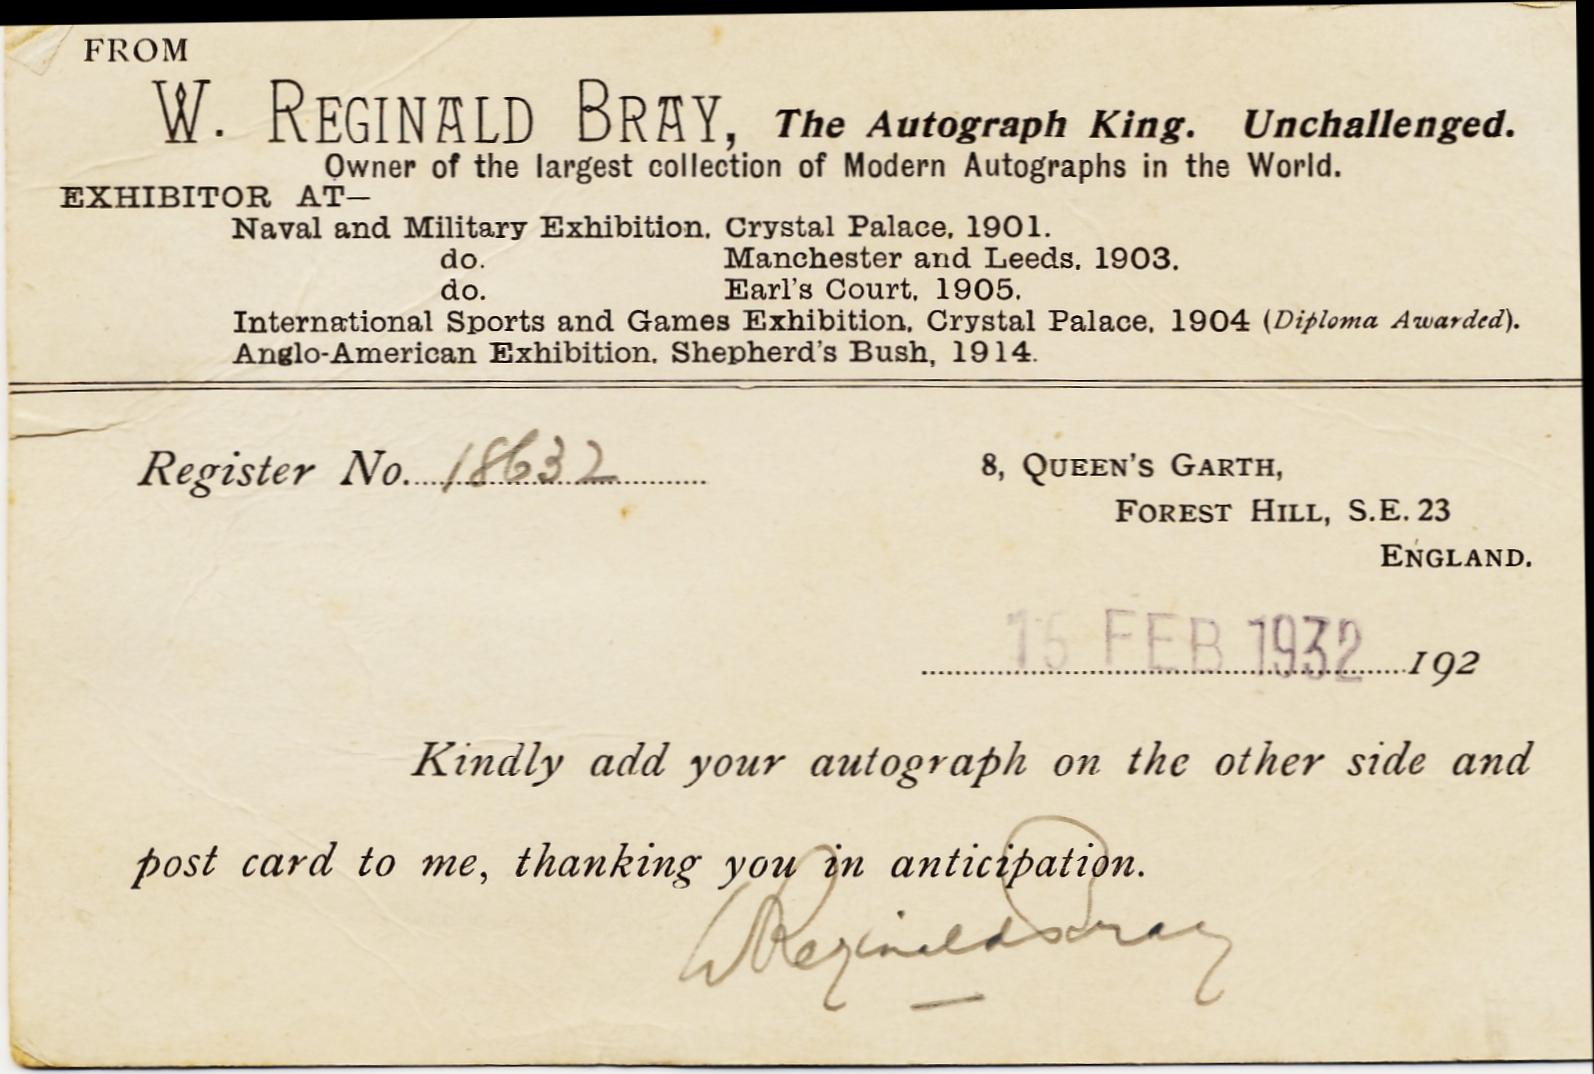 FROM
W. REGINALD BRAY, The Autograph King. Unchallenged.
Owner of the largest collection of Modern Autographs in the World.
EXHIBITOR AT—
Naval and Military Exhibition, Crystal Palace, 1901.
do. Manchester and Leeds, 1903.
do. Earl's Court, 1905.
International Sports and Games Exhibition, Crystal Palace, 1904 (Diploma Awarded).
Anglo-American Exhibition, Shepherd's Bush, 1914.
Register No. 18632
8, QUEEN'S GARTH,
FOREST HILL, S.E. 23
ENGLAND.
15 FEB 1932 192
Kindly add your autograph on the other side and
post card to me, thanking you in anticipation.
W Reginald Bray